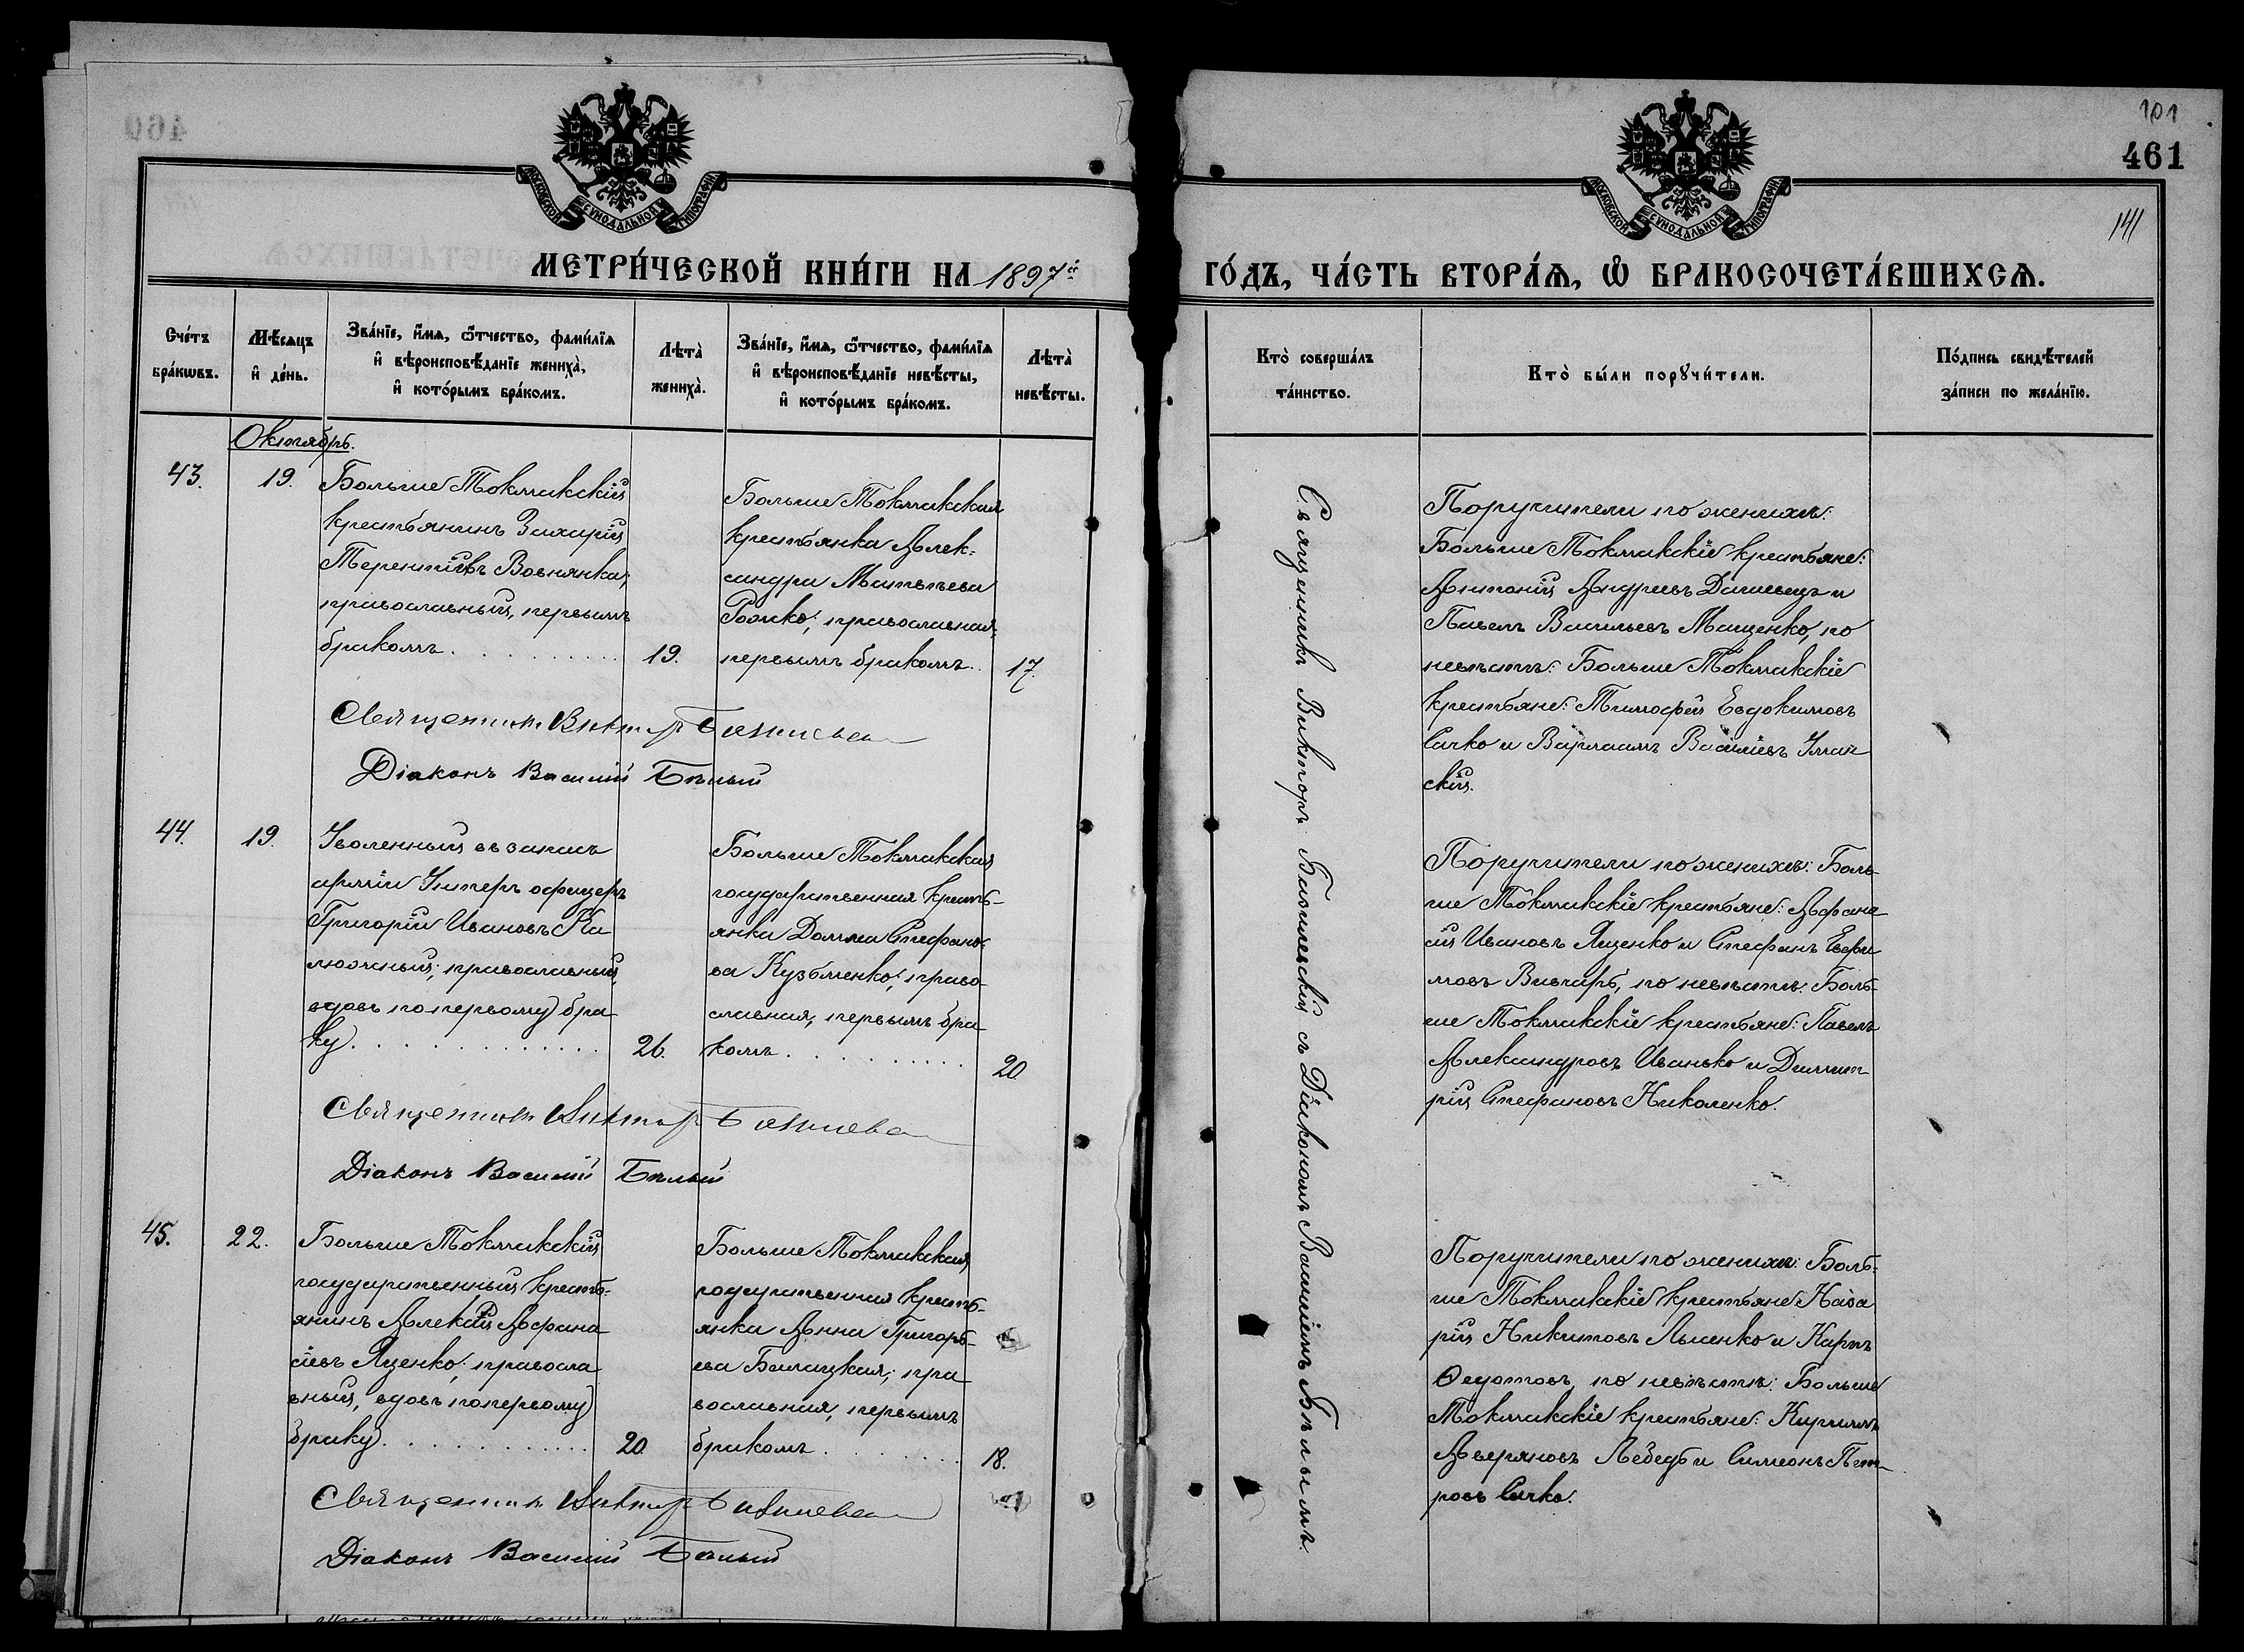 101
461
141
МОСКОВСКОЙ СУНОДАЛЬНОЙ ТИПОГРАФІИ
МОСКОВСКОЙ СУНОДАЛЬНОЙ ТИПОГРАФІИ
МЕТРИ́ЧЕСКОЙ КНИ́ГИ НА 1897й
ГО́ДЪ, ЧА́СТЬ ВТОРА́Ѧ, Ѡ БРАКОСОЧЕТА́ВШИХСѦ.
Сче́тъ бра́кѡвъ.
Мѣ́сѧцъ и҆ де́нь.
Зва́нїе, и҆́мѧ, ѻ҆́тчество, фами́лїѧ
и҆ вѣроисповѣ́данїе жениха̀,
и҆ кото́рымъ бра́комъ.
Лѣта̀ жениха̀.
Зва́нїе, и҆́мѧ, ѻ҆́тчество, фами́лїѧ
и҆ вѣроисповѣ́данїе невѣ́сты,
и҆ кото́рымъ бра́комъ.
Лѣта̀ невѣ́сты.
Кто̀ соверша́лъ
та́инство.
Кто̀ бы́ли порꙋчи́тели.
По́дпись свидѣ́телей
за́писи по жела́нїю.
Октябрь.
43.
19.
Больше Токмакскій
крестьянинъ Захарій
Терентіевъ Вовнянка;
православный, первымъ
бракомъ.
19.
Больше Токмакская
крестьянка Алек-
сандра Матвѣева
Рожко; православная,
первымъ бракомъ.
17.
Поручители по женихѣ:
Больше Токмакскіе крестьяне:
Антоній Андреевъ и
Павелъ Васильевъ Мащенко, по
невѣстѣ: Больше Токмакскіе
крестьяне: Тимофей Евдокимовъ
Сачко и Варлаамъ Василіевъ Уман
скій.
Священникъ Викторъ
Діаконъ Василій Бѣлый
44.
19.
Уволенный въ запасъ
арміи Унтеръ офицеръ
Григорій Ивановъ Ка
люжный; православный,
вдовъ по первому бра-
ку.
26.
Больше Токмакская
государственная кресть-
янка Домна Стефано-
ва Кузьменко; право-
славная, первымъ бра-
комъ.
20.
Поручители по женихѣ: Боль-
ше Токмакскіе крестьяне: Афана
сій Ивановъ Яценко и Стефанъ Евфи
мовъ Вивчарь, по невѣстѣ: Боль-
ше Токмакскіе крестьяне: Павелъ
Александровъ Иванько и Димит
рій Стефановъ Николенко.
Священникъ Викторъ
Діаконъ Василій Бѣлый
45.
22.
Больше Токмакскій
государственный кресть-
янинъ Алексій Афана
сіевъ Яценко; правосла
вный, вдовъ по первому
браку.
20.
Больше Токмакская
государственная кресть-
янка Анна Григорь-
ева Билицкая; пра
вославная, первымъ
бракомъ.
18.
Поручители по женихѣ: Боль-
ше Токмакскіе крестьяне: Наза
рій Никитовъ Лысенко и Карпъ
Ѳедотовъ, по невѣстѣ: Больше
Токмакскіе крестьяне: Кириллъ
Аверяновъ Лебедь и Симеонъ Пет
ровъ Сачко.
Священникъ Викторъ
Діаконъ Василій Бѣлый
Священникъ Викторъ съ Діакономъ Василіемъ Бѣлымъ.